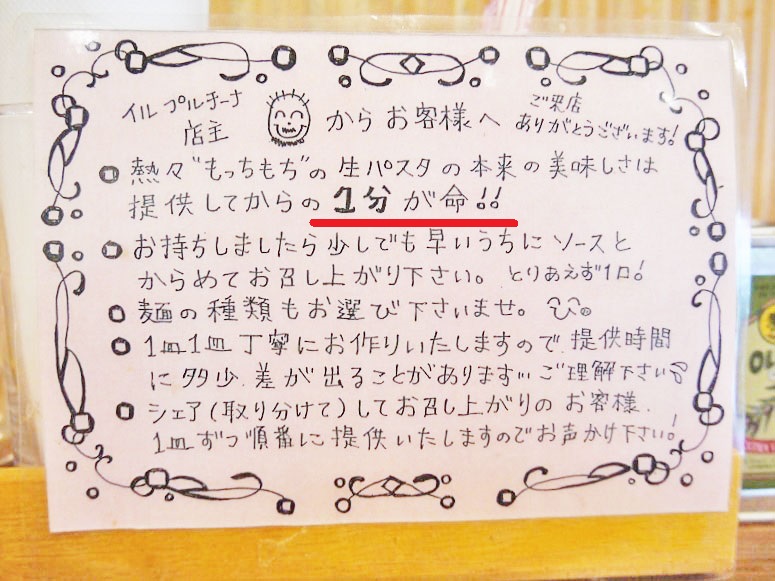 イル プルチーナ
店主
から お客様へ
ご来店
ありがとうございます!
熱々"もっちもち"の 生パスタ の 本来 の 美味しさは
提供してからの 1分 が 命!!
お持ちしましたら 少しでも 早いうちに ソースと
からめて お召し上がり下さい。 とりあえず1口!
麺の 種類も お選び 下さいませ。
1皿1皿 丁寧に お作りいたしますので 提供時間
に 多少、差が 出ることがあります… ご理解下さい
シェア(取り分けて)して お召し上がりの お客様、
1皿ずつ 順番に 提供いたしますのでお声かけ下さい!